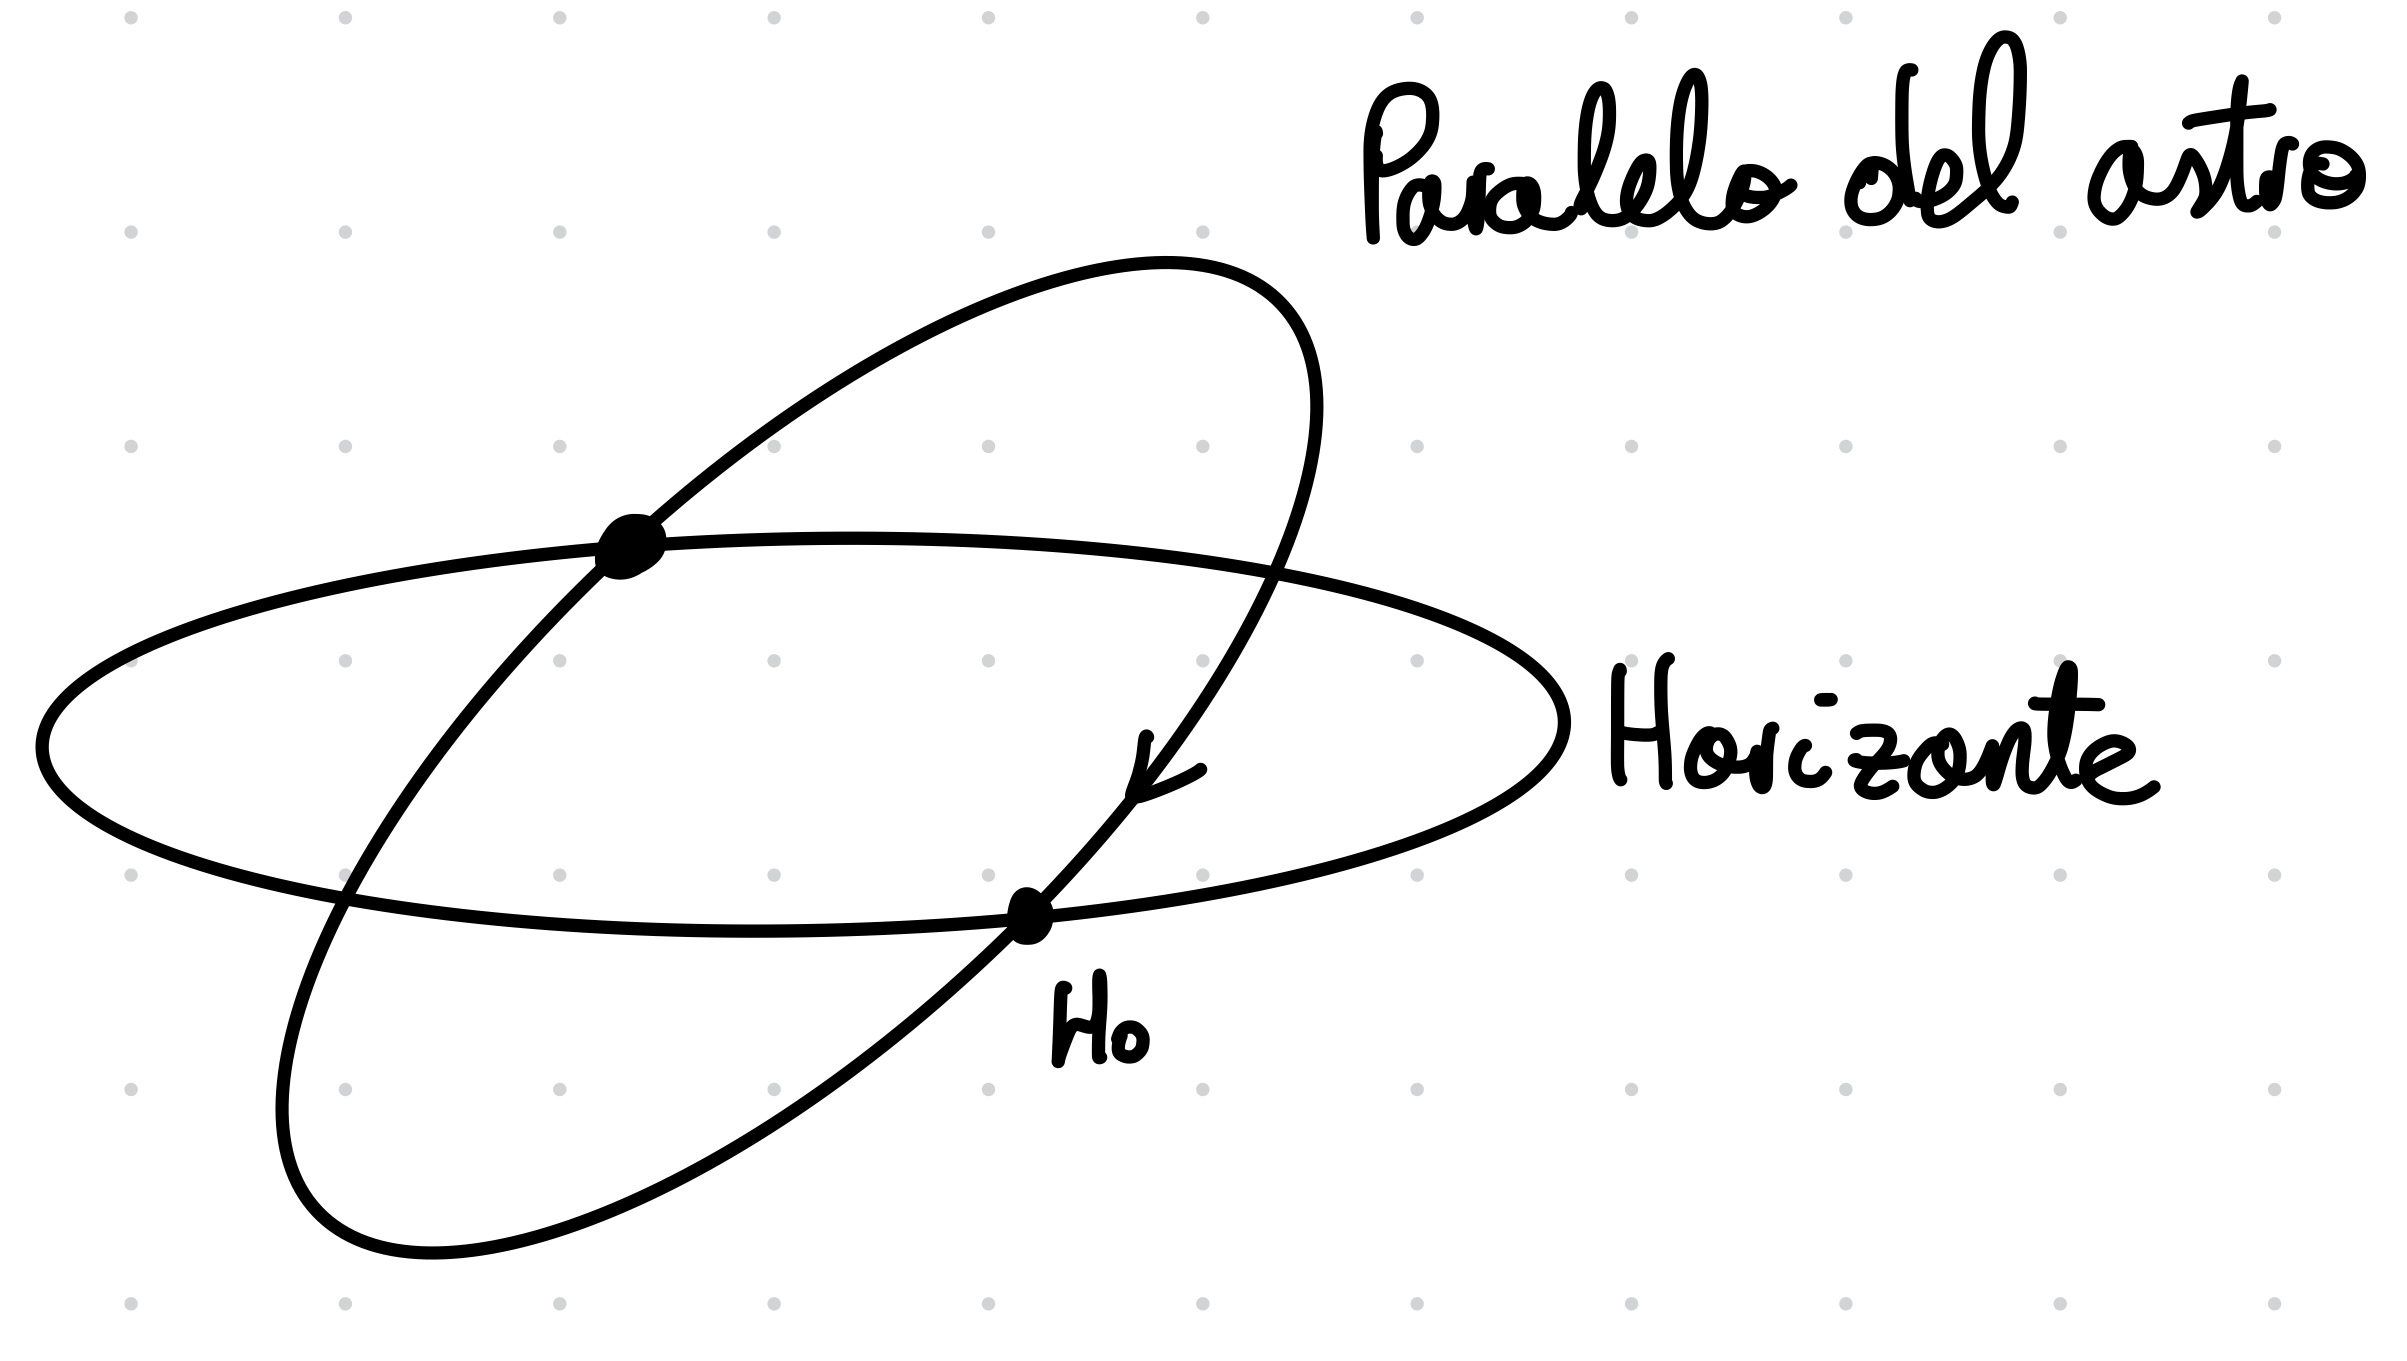 Paralelo del astro
Horizonte
Ho